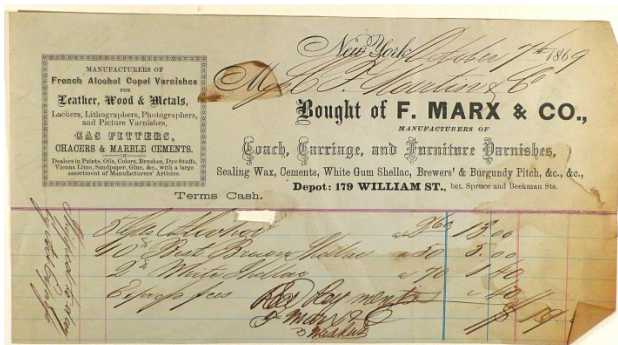 New York October 7th 1869
MANUFACTURERS OF
French Alcohol Copal Varnishes
FOR
Leather, Wood & Metals,
Lackers, Lithographers, Photographers,
and Picture Varnishes,
GAS FITTERS,
CHACERS & MARBLE CEMENTS.
Dealers in Paints, Oils, Colors, Brushes, Dye Stuffs,
Vienna Lime, Sandpaper, Glue, &c., with a large
assortment of Manufacturers' Articles.
Bought of F. MARX & CO.,
MANUFACTURERS OF
Coach, Carriage, and Furniture Varnishes,
Sealing Wax, Cements, White Gum Shellac, Brewers' & Burgundy Pitch, &c., &c.,
Depot: 179 WILLIAM ST., bet. Spruce and Beekman Sts.
Terms Cash.
Alcohol 2 60 13.00
10 lb Best Brown Shellac a 50 5.00
2 lb White Shellac a 70 1 40
Rec'd Payment
F Marx & C